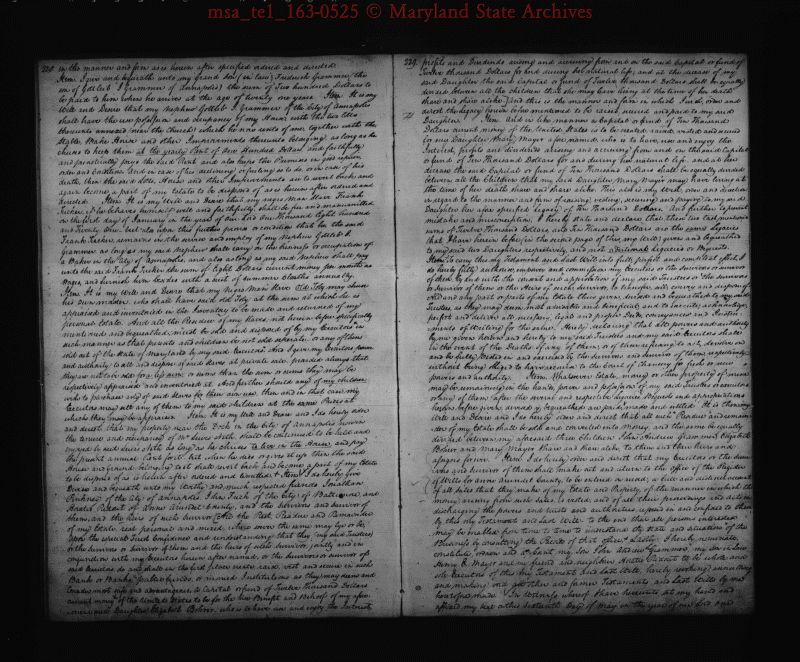 msa_te1_163-0525 © Maryland State Archives
in the manner and form as is herein after specified ordered and directed
Item. I give and bequeath unto my Grand Son (in law) Frederick Grammer (the
son of Gottlieb I Grammer of Annapolis) the sum of Two hundred Dollars to
be paid to him when he arrives at the age of twenty one years. Item. It is my
Will and Desire that my Nephew Gottlieb I Grammer of the City of Annapolis
shall have the use possession and occupancy of my House with the two
annexed (near the Church) which he now rents of me, together with the
Stable, Bake House and other Improvements thereunto belonging, as long as he
chuses to keep them at the yearly Rent of One Hundred Dollars and faithfully
and punctually pays the said Rent and also keeps the Premises in good repair
order and condition. And in case of his declining or failing so to do, or in case of his
death, then the said Lots, House and other Improvements are to revert back and
again become a part of my estate to be disposed of as is herein after ordered and
directed. Item. It is my Will and Desire that my negro Man Slave Frank
Tucker, if he behaves himself well and faithfully, shall be free and manumitted
on the first day of January in the year of our Lord One thousand Eight Hundred
and Twenty One but also upon this further proviso or condition that he the said
Frank Tucker remains in the service and employ of my Nephew Gottlieb I
Grammer as long as my said Nephew shall carry on the business or occupation of
a Baker in the City of Annapolis, and also as long as my said Nephew shall pay
unto the said Frank Tucker the sum of Eight Dollars current money per month as
Wages, and furnish him besides with a suit of summer Cloaths annually.
Item. It is my Will and Desire that my Negro Man Old Toby may chuse
his own master, who shall have said old Toby at the sum at which he is
appraised and inventoried in the Inventory to be made and returned of my
personal Estate. And all the Residue of my Slaves not herein before specifically
manumitted and bequeathed, must be sold and disposed of by my Executors in
such manner as that parents and children be not sold separate or any of them
sold out of the State of Maryland by my said Executors. And I give my Executors power
and authority to sell and dispose of said Slaves at private sale provided always that
they are not to be sold for a less sum or sums than the sum or sums they may be
respectively appraised and inventoried at. And further should any of my children
wish to purchase any of said Slaves for their own use, then and in that case my
Executors may sell any of them to my said children at the same Prices at
which they may be appraised. Item. It is my Will and Desire and I do hereby order
and direct, that my property near the Dock in the City of Annapolis
the tenure and occupancy of Mr Lewis Neth shall be continued to be held and
occupied by said Lewis Neth as long as he chuses to live in the House, and pay
the present annual rent for it, but when he dies or gives it up then the said
House and ground belonging to it shall revert back and become a part of my Estate
to be disposed of as is herein after ordered and directed. Item. I do hereby give
Devise and bequeath unto my worthy and much respected friends Jonathan
Pinkney of the City of Annapolis of the City of Baltimore, and
Horatio Ridout of Anne Arundel County, and the Survivors and Survivor of
them, and the Heirs of such Survivor, All the Rest Residue and Remainder
of my Estate real personal and mixed, where soever the same may be
Upon the special Trust Confidence and understanding that they (my said Trustees)
or the Survivors or Survivor of them and the heirs of such Survivor, jointly and in
conjunction with my Executors herein after named, or the Survivors or Survivor of
said Executors do and shall in the first place raise, vest and secure in such
Bank or Banks, public funds, or monied Institutions as they may deem and
consider most safe and advantageous a Capital or fund of Twelve thousand Dollars
current money of the United States to be for the Use Benefit and Behoof of my
Daughter Elizabeth Bohrer, who is to have use and enjoy the Interest,
229.
profits and Dividends arising and accruing from and on the said Capital or fund of
Twelve thousand Dollars for and during her natural life, and at the decease of my
said Daughter the said capital or fund of Twelve thousand Dollars shall be equally
divided between all the children that she may have living at the time of her death
share and share alike. And this is the manner and form in which I will, order and
direct the legacy herein before mentioned to be raised, secured and paid to my said
Daughter. Item. And in like manner a Capital or fund of Ten Thousand
Dollars current money of the United States is to be created, raised, vested and secured
for my Daughter Mary Mayer, who is to have, use and enjoy the
Interest, profits and dividends arising and accruing from and on the said Capital
or fund of Ten Thousand Dollars for and during her natural life, and at her
decease the said Capital or fund of Ten Thousand Dollars shall be equally divided
between all the Children that my said Daughter Mary Mayer may have living at
the time of her death share and share alike. This also is my Will, order and direction
in regard to the manner and form of raising, vesting, securing and paying to my said
Daughter her afore specified legacy of Ten Thousand Dollars. And further to prevent
mistake and misconception, I hereby state and declare that these two last mentioned
sums of Twelve Thousand Dollars, and Ten Thousand Dollars are the same legacies
that I have herein before (in the second page of this my Will) given and bequeathed
to my said two Daughters respectively, and not additional legacies or Bequests.
Item. To carry this my Testament and last Will into full, proper and complete effect, I
do hereby fully authorize, empower and commission my Executors or the Survivors or Survivor
of them, by and with the consent and approbation of my said Trustees or the Survivors
or Survivor of them or the Heirs of such Survivor, to bargain, sell, convey and dispose of
all and any part or parts of my Estate there given, devised and bequeathed to my said
Trustees, as they may deem most advisable and beneficial and to execute, acknowledge
perfect and deliver all necessary, legal and proper Deeds conveyances and Instru-
ments of Writing for the same. Hereby declaring that all powers and authority
by me given herein are hereby to my said Trustees and my said Executors, shall
in the event of the Deaths of any of them, or of their refusing to act, devolve on
and be fully vested in and exercised by the survivors and survivor of them respectively
without being obliged to have recourse to the Court of Chancery for fresh or renewed
powers and authority. Item. Whatsoever Estate, money or other property of mine
may be remaining in the hands, power and possession of my said Trustees or Executors
or any of them after the several and respective legacies Bequests and appropriations
herein before given, devised, and bequeathed are paid, made and settled. It is then my
Will and Desire and I do hereby order and direct, that all such Residue and remain-
der of my Estate shall be sold and converted into Money and the same be equally
divided between my aforesaid three Children John Andrew Grammer, Elizabeth
Bohrer and Mary Mayer share and share alike to them and their Heirs and
assigns forever. Item. I do hereby order and direct that my Executors or the Sur-
vivors and Survivor of them shall make out and return to the Office of the Register
of Wills for Anne Arundel County, to be entered on record, a full and distinct account
of all Sales that they make of my Estate and Property, of the manner in which the
money arising from said Sales is vested and of all their proceedings and acts in
discharging the powers and trusts and authorities reposed in and confided to them
by this my Testament and last Will, To the end that all persons interested
may be enabled from time to time to understand the state and situation of the
Business by consulting the Records of that office. Lastly, I hereby nominate,
constitute, ordain and appoint my Son John Andrew Grammer, my Son in law
Henry C. Mayer and my friend and neighbor Horatio Ridout to be whole and
sole Executors of this my Testament and last Will, hereby revoking, annulling
and making void all other and former Testaments and last Wills by me
heretofore made. In Witness whereof I have hereunto set my hand and
affixed my seal this sixteenth day of May in the year of our Lord one